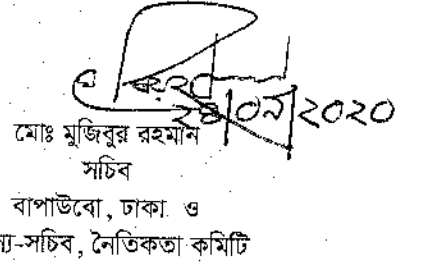 ২৪|০৯|২০২০
মোঃ মুজিবুর রহমান
সচিব
বাপাউবো, ঢাকা ও
-সচিব, নৈতিকতা কমিটি